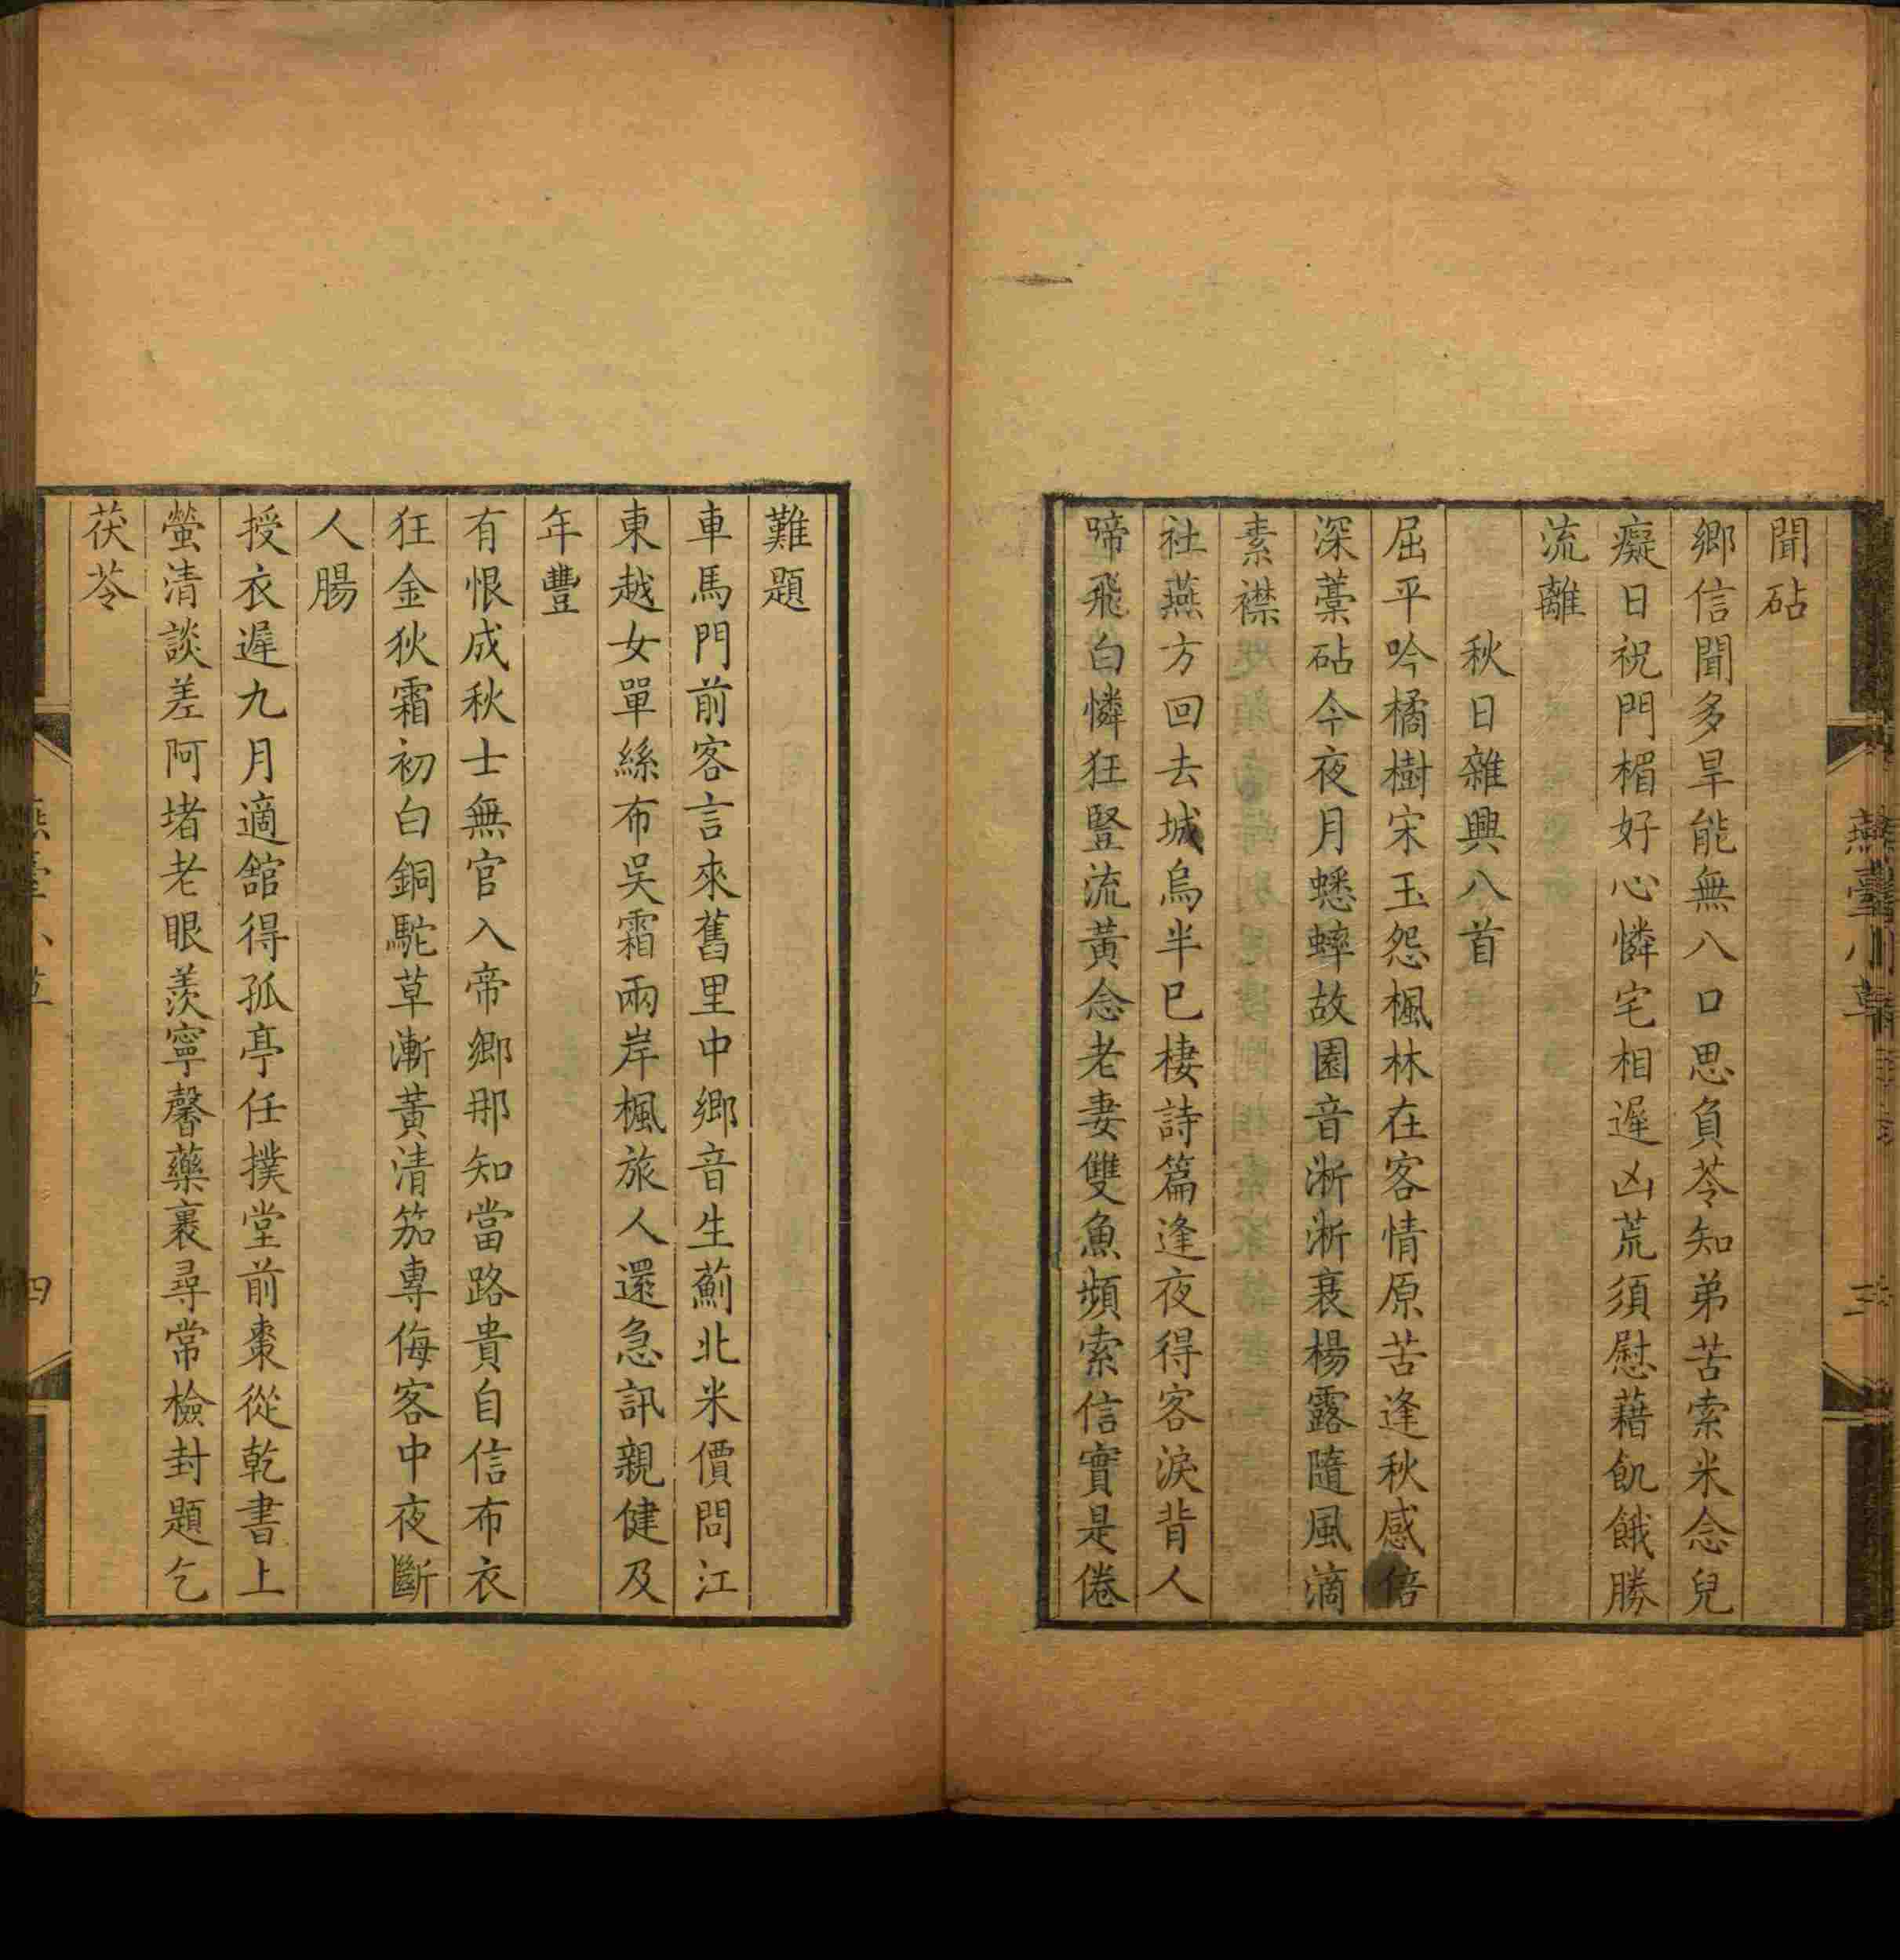 聞砧
鄉信聞多旱能無八口思負苓知弟苦索米念兒
癡日祝門楣好心憐宅相遲凶荒須慰藉飢餓勝
流離
秋日雜興八首
屈平吟橘樹宋玉怨楓林在客情原苦逢秋感倍
深藁砧今夜月蟋蟀故園音淅淅衰楊露隨風滴
素襟
社燕方回去城烏半已棲詩篇逢夜得客淚背人
啼飛白憐狂豎流黃念老妻雙魚頻索信實是倦
難題
車馬門前客言來舊里中鄉音生薊北米價問江
東越女單絲布吳霜兩岸楓旅人還急訊親健及
年豐
有恨成秋士無官入帝鄉那知當路貴自信布衣
狂金狄霜初白銅駝草漸黃清笳專侮客中夜斷
人腸
授衣遲九月適舘得孤亭任撲堂前棗從乾書上
螢清談差阿堵老眼羨寧馨藥裹尋常檢封題乞
茯苓
燕臺小草
四